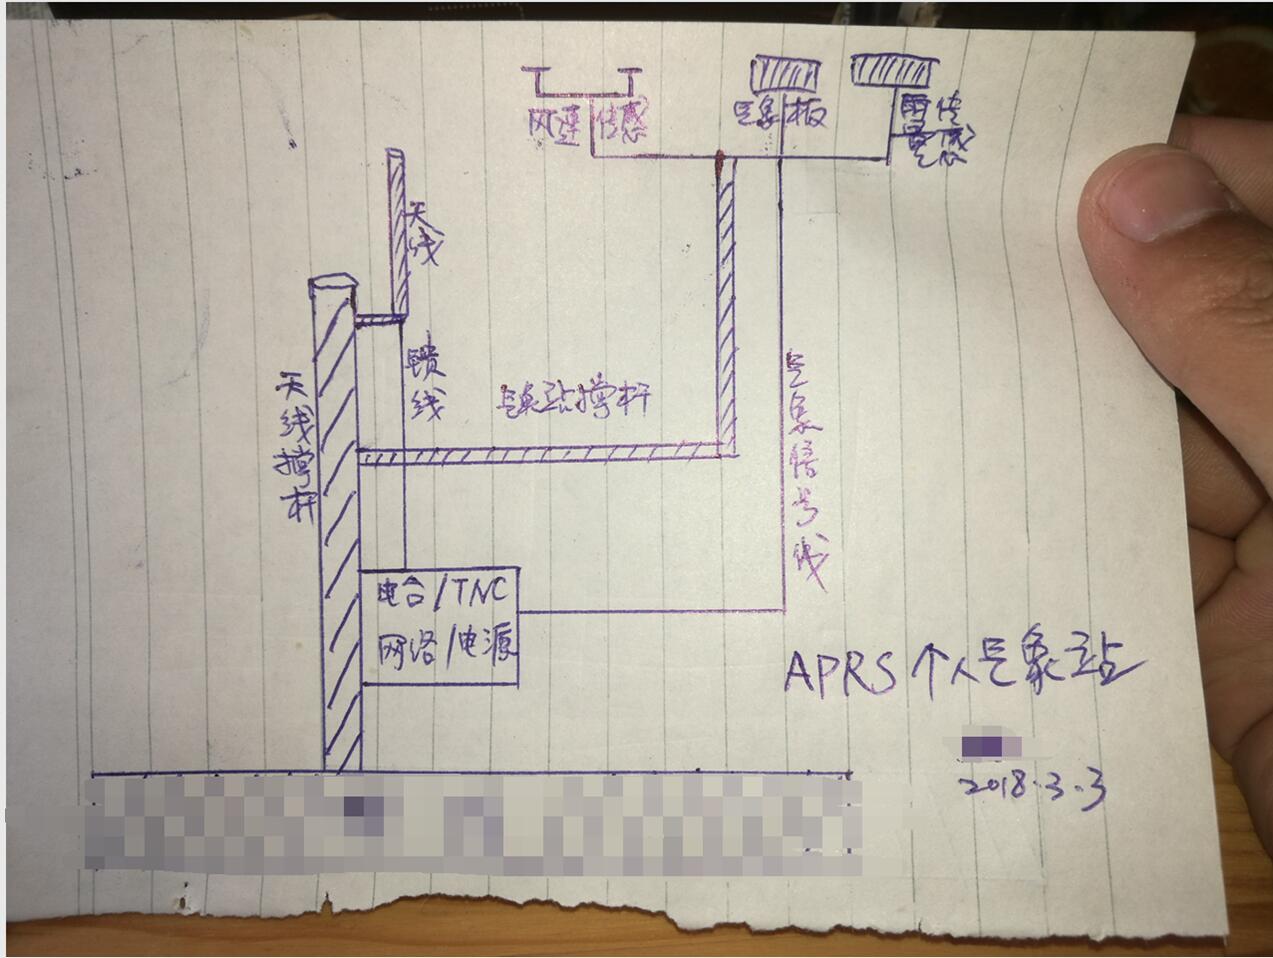 风速传感
气象板
雨传
量感
天线
馈线
天线撑杆
气象站撑杆
气象信号线
电台/TNC
网络/电源
APRS个人气象站
2018.3.3